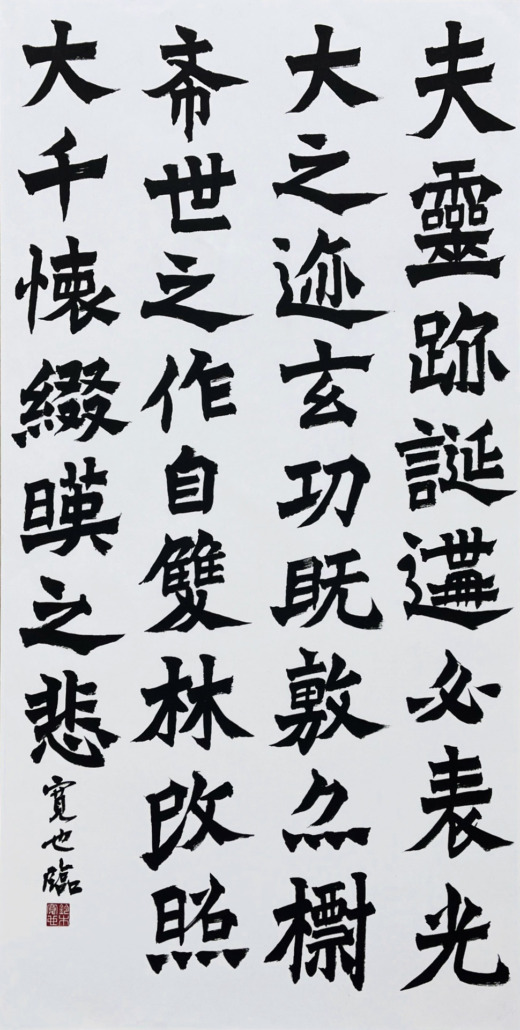 夫靈跡誕遘必表光
大之迹玄功既敷亦標
希世之作自雙林改照
大千懷綴暎之悲
寛也臨